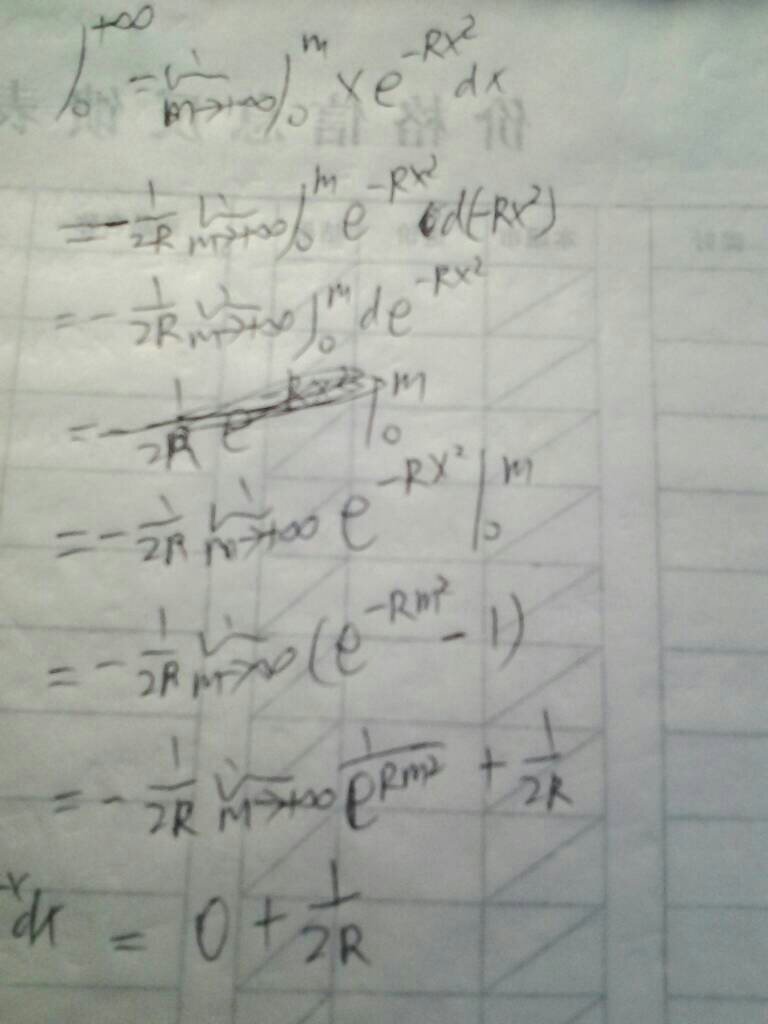 ∫₀^{+∞} = lim_{m→+∞} ∫₀^m x e^{-Rx²} dx
= -1/2R lim_{m→+∞} ∫₀^m e^{-Rx²} d(-Rx²)
= -1/2R lim_{m→+∞} ∫₀^m de^{-Rx²}
= -1/2R e^{-Rx²} |₀^m
= -1/2R lim_{m→+∞} e^{-Rx²} |₀^m
= -1/2R lim_{m→+∞} (e^{-Rm²} - 1)
= -1/2R lim_{m→+∞} 1/e^{Rm²} + 1/2R
= 0 + 1/2R